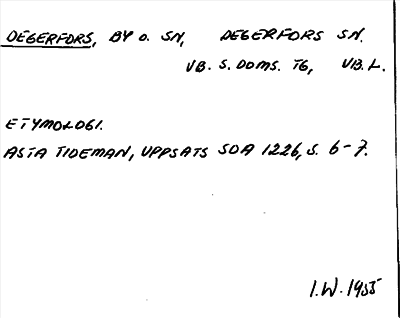 DEGERFORS, BY O. SN, DEGERFORS SN.
VB. S. DOMS. TG, VB. L.
ETYMOLOGI.
ASTA TIDEMAN, UPPSATS SOA 1226, S. 6-7.
I.W. 1955